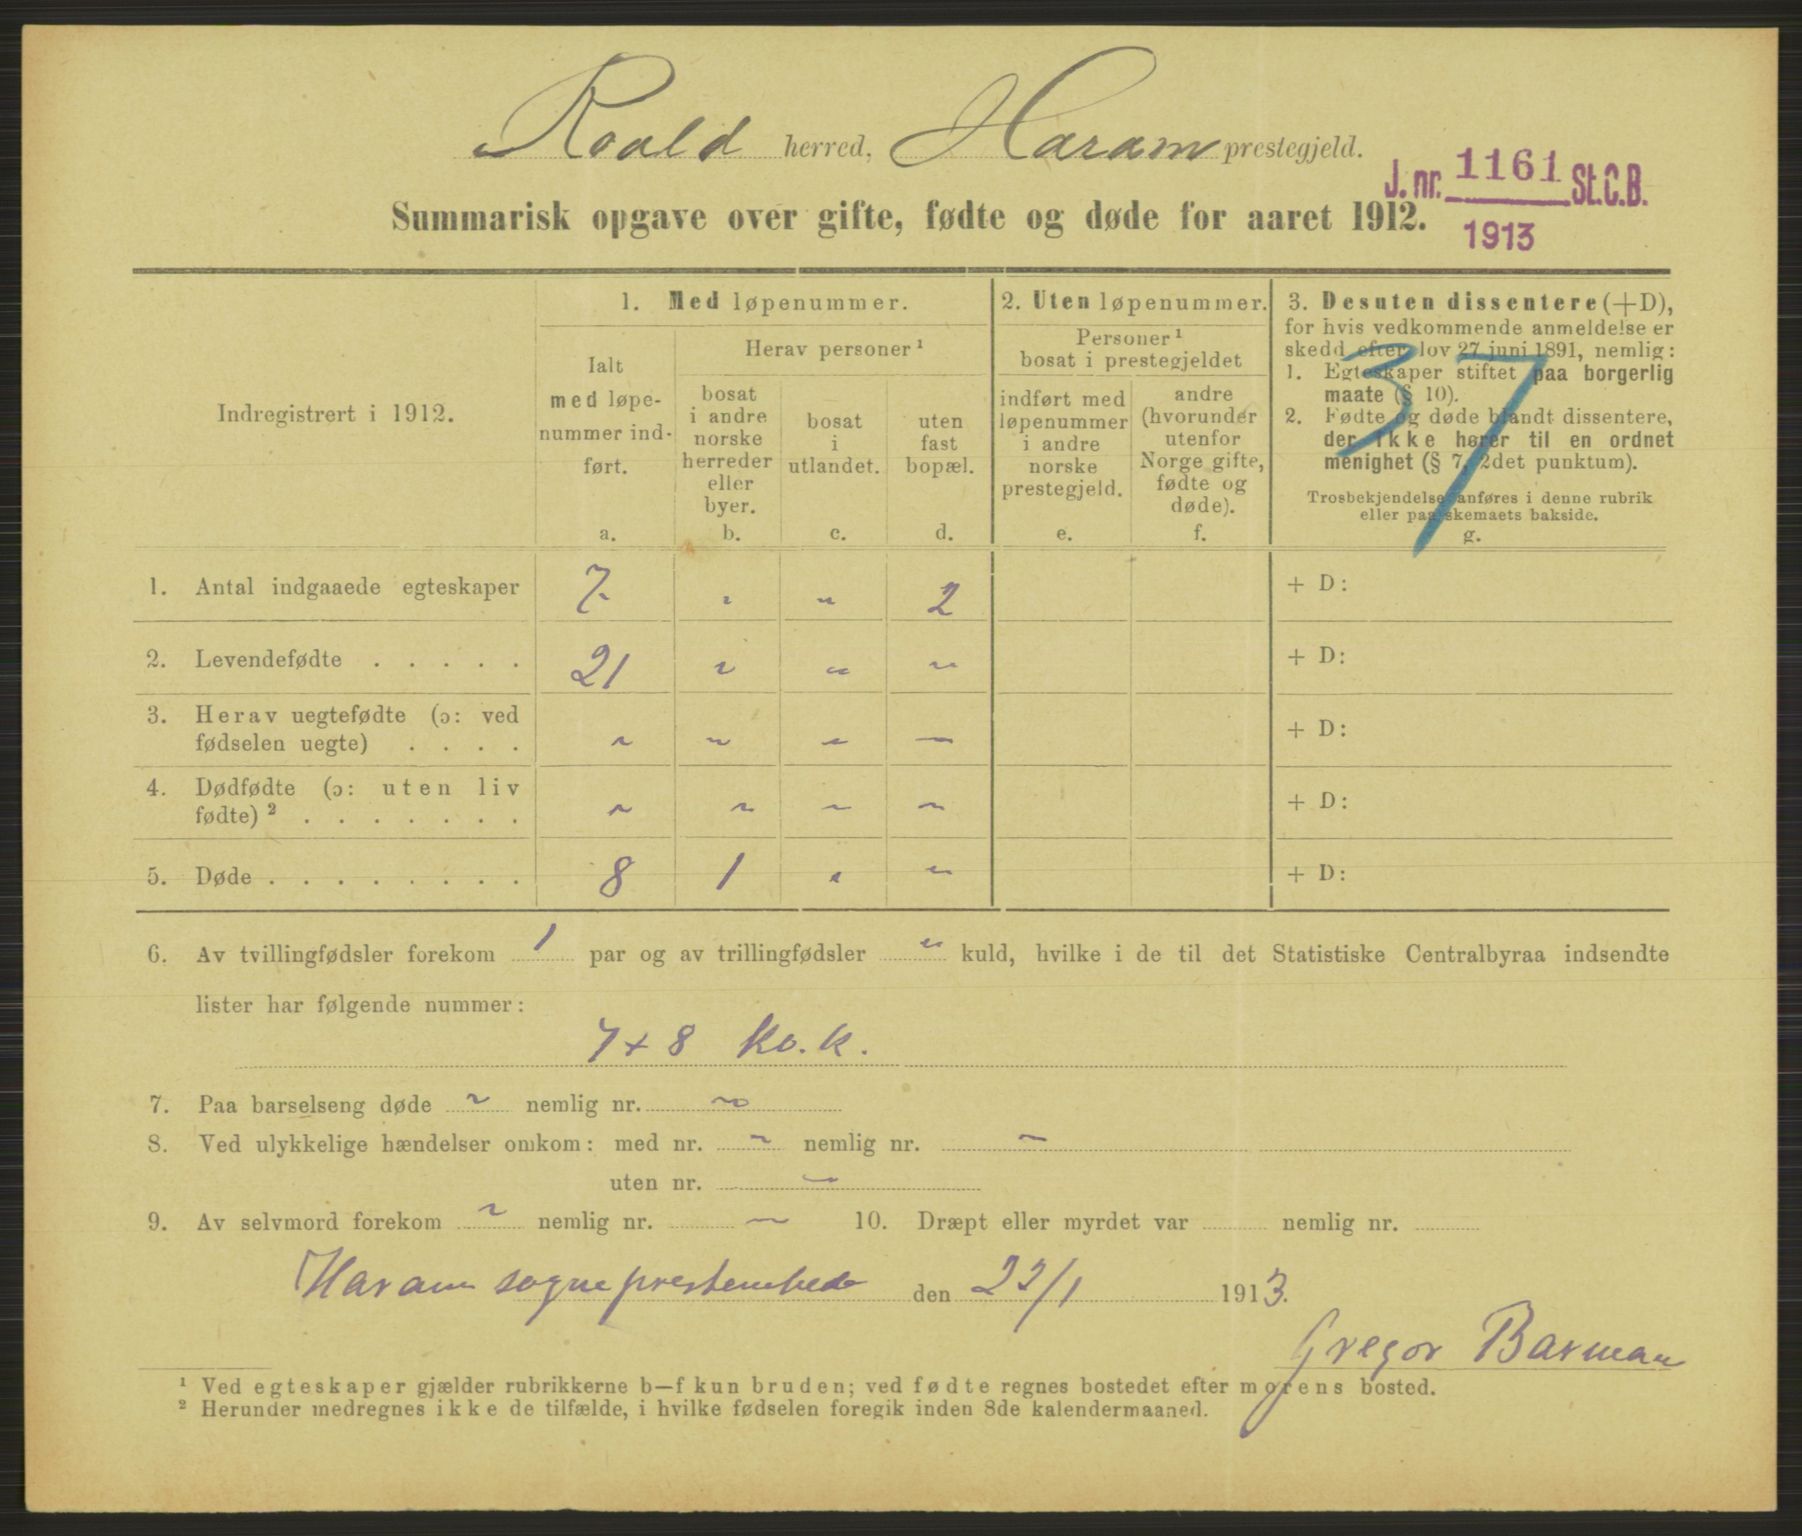 Roald herred, Haram prestegjeld.
J. nr. 1161 St.C.B.
1913
Summarisk opgave over gifte, fødte og døde for aaret 1912.
Indregistrert i 1912.
1. Med løpenummer.
Ialt
med løpe-
nummer ind-
ført.
a.
Herav personer ¹
bosat
i andre
norske
herreder
eller
byer.
b.
bosat
i
utlandet.
c.
uten
fast
bopæl.
d.
2. Uten løpenummer.
Personer ¹
bosat i prestegjeldet
indført med
løpenummer
i andre
norske
prestegjeld.
e.
andre
(hvorunder
utenfor
Norge gifte,
fødte og
døde).
f.
3. Desuten dissentere (+D),
for hvis vedkommende anmeldelse er
skedd efter lov 27 juni 1891, nemlig:
1. Egteskaper stiftet paa borgerlig
maate (§ 10).
2. Fødte og døde blandt dissentere,
der ikke hører til en ordnet
menighet (§ 7, 2det punktum).
Trosbekjendelse anføres i denne rubrik
eller paa skemaets bakside.
g.
37
1. Antal indgaaede egteskaper 7 " " 2 + D:
2. Levendefødte . . . . . 21 " " " + D:
3. Herav uegtefødte (ɔ: ved
fødselen uegte) . . . . " " " " + D:
4. Dødfødte (ɔ: uten liv
fødte) ² . . . . . . . " " " " + D:
5. Døde . . . . . . . . 8 1 " " + D:
6. Av tvillingfødsler forekom 1 par og av trillingfødsler " kuld, hvilke i de til det Statistiske Centralbyraa indsendte
lister har følgende nummer:
7 + 8 kv. k.
7. Paa barselseng døde " nemlig nr. "
8. Ved ulykkelige hændelser omkom: med nr. " nemlig nr. "
uten nr. "
9. Av selvmord forekom " nemlig nr. " 10. Dræpt eller myrdet var nemlig nr.
Haram sogneprestembede den 22/1 1913.
Gregor Barman
¹ Ved egteskaper gjælder rubrikkerne b—f kun bruden; ved fødte regnes bostedet efter morens bosted.
² Herunder medregnes ikke de tilfælde, i hvilke fødselen foregik inden 8de kalendermaaned.